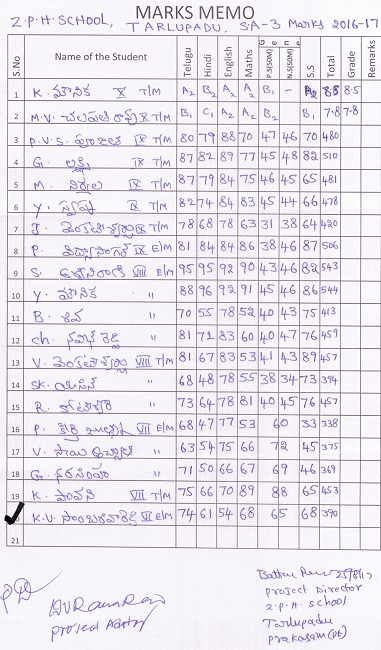 MARKS MEMO
Z.P.H. SCHOOL, TARLUPADU, SA-3 Marks 2016-17
S.No Name of the Student Telugu Hindi English Maths Gene P.S(50M) N.S(50M) S.S Total Grade Remarks
1 K. మౌనిక X T/M A2 B2 A2 A2 B1 - A2 8.8 8.5
2 M.V. X T/M B1 C1 A2 A2 B2 B1 7.8 7.8
3 P.V.S. IX T/M 80 79 88 70 47 46 70 480
4 G. లక్ష్మి IX T/M 87 82 89 77 45 48 82 510
5 M. నిర్మల IX T/M 87 79 84 75 46 45 65 481
6 Y. స్వప్న IX T/M 82 74 84 83 45 44 66 478
7 J. వెంకటేశ్వర్లు IX T/M 78 68 78 63 31 38 64 420
8 P. IX E/M 81 84 84 86 38 46 87 506
9 S. VIII E/M 95 95 92 90 43 46 82 543
10 Y. మౌనిక " 88 96 92 91 45 46 86 544
11 B. శివ " 70 55 78 52 40 43 75 413
12 Ch. నవీన్ రెడ్డి " 81 72 83 60 40 47 76 459
13 V. వెంకటేశ్వర్లు VIII T/M 81 67 83 53 41 43 89 457
14 SK. " 68 48 78 55 38 34 73 394
15 R. " 73 64 78 81 40 45 76 457
16 P. VII E/M 68 47 77 53 60 33 338
17 V. సాయి " 63 54 75 66 72 45 375
18 G. నరసింహ " 71 50 66 67 69 46 369
19 K. పావని VII T/M 75 66 70 89 88 65 453
20 K.V. సాంబశివారెడ్డి VI E/M 74 61 54 68 65 68 390
21
25/8/17
Project Director
Z.P.H. School
Tarlupadu
prakasam (Dt)